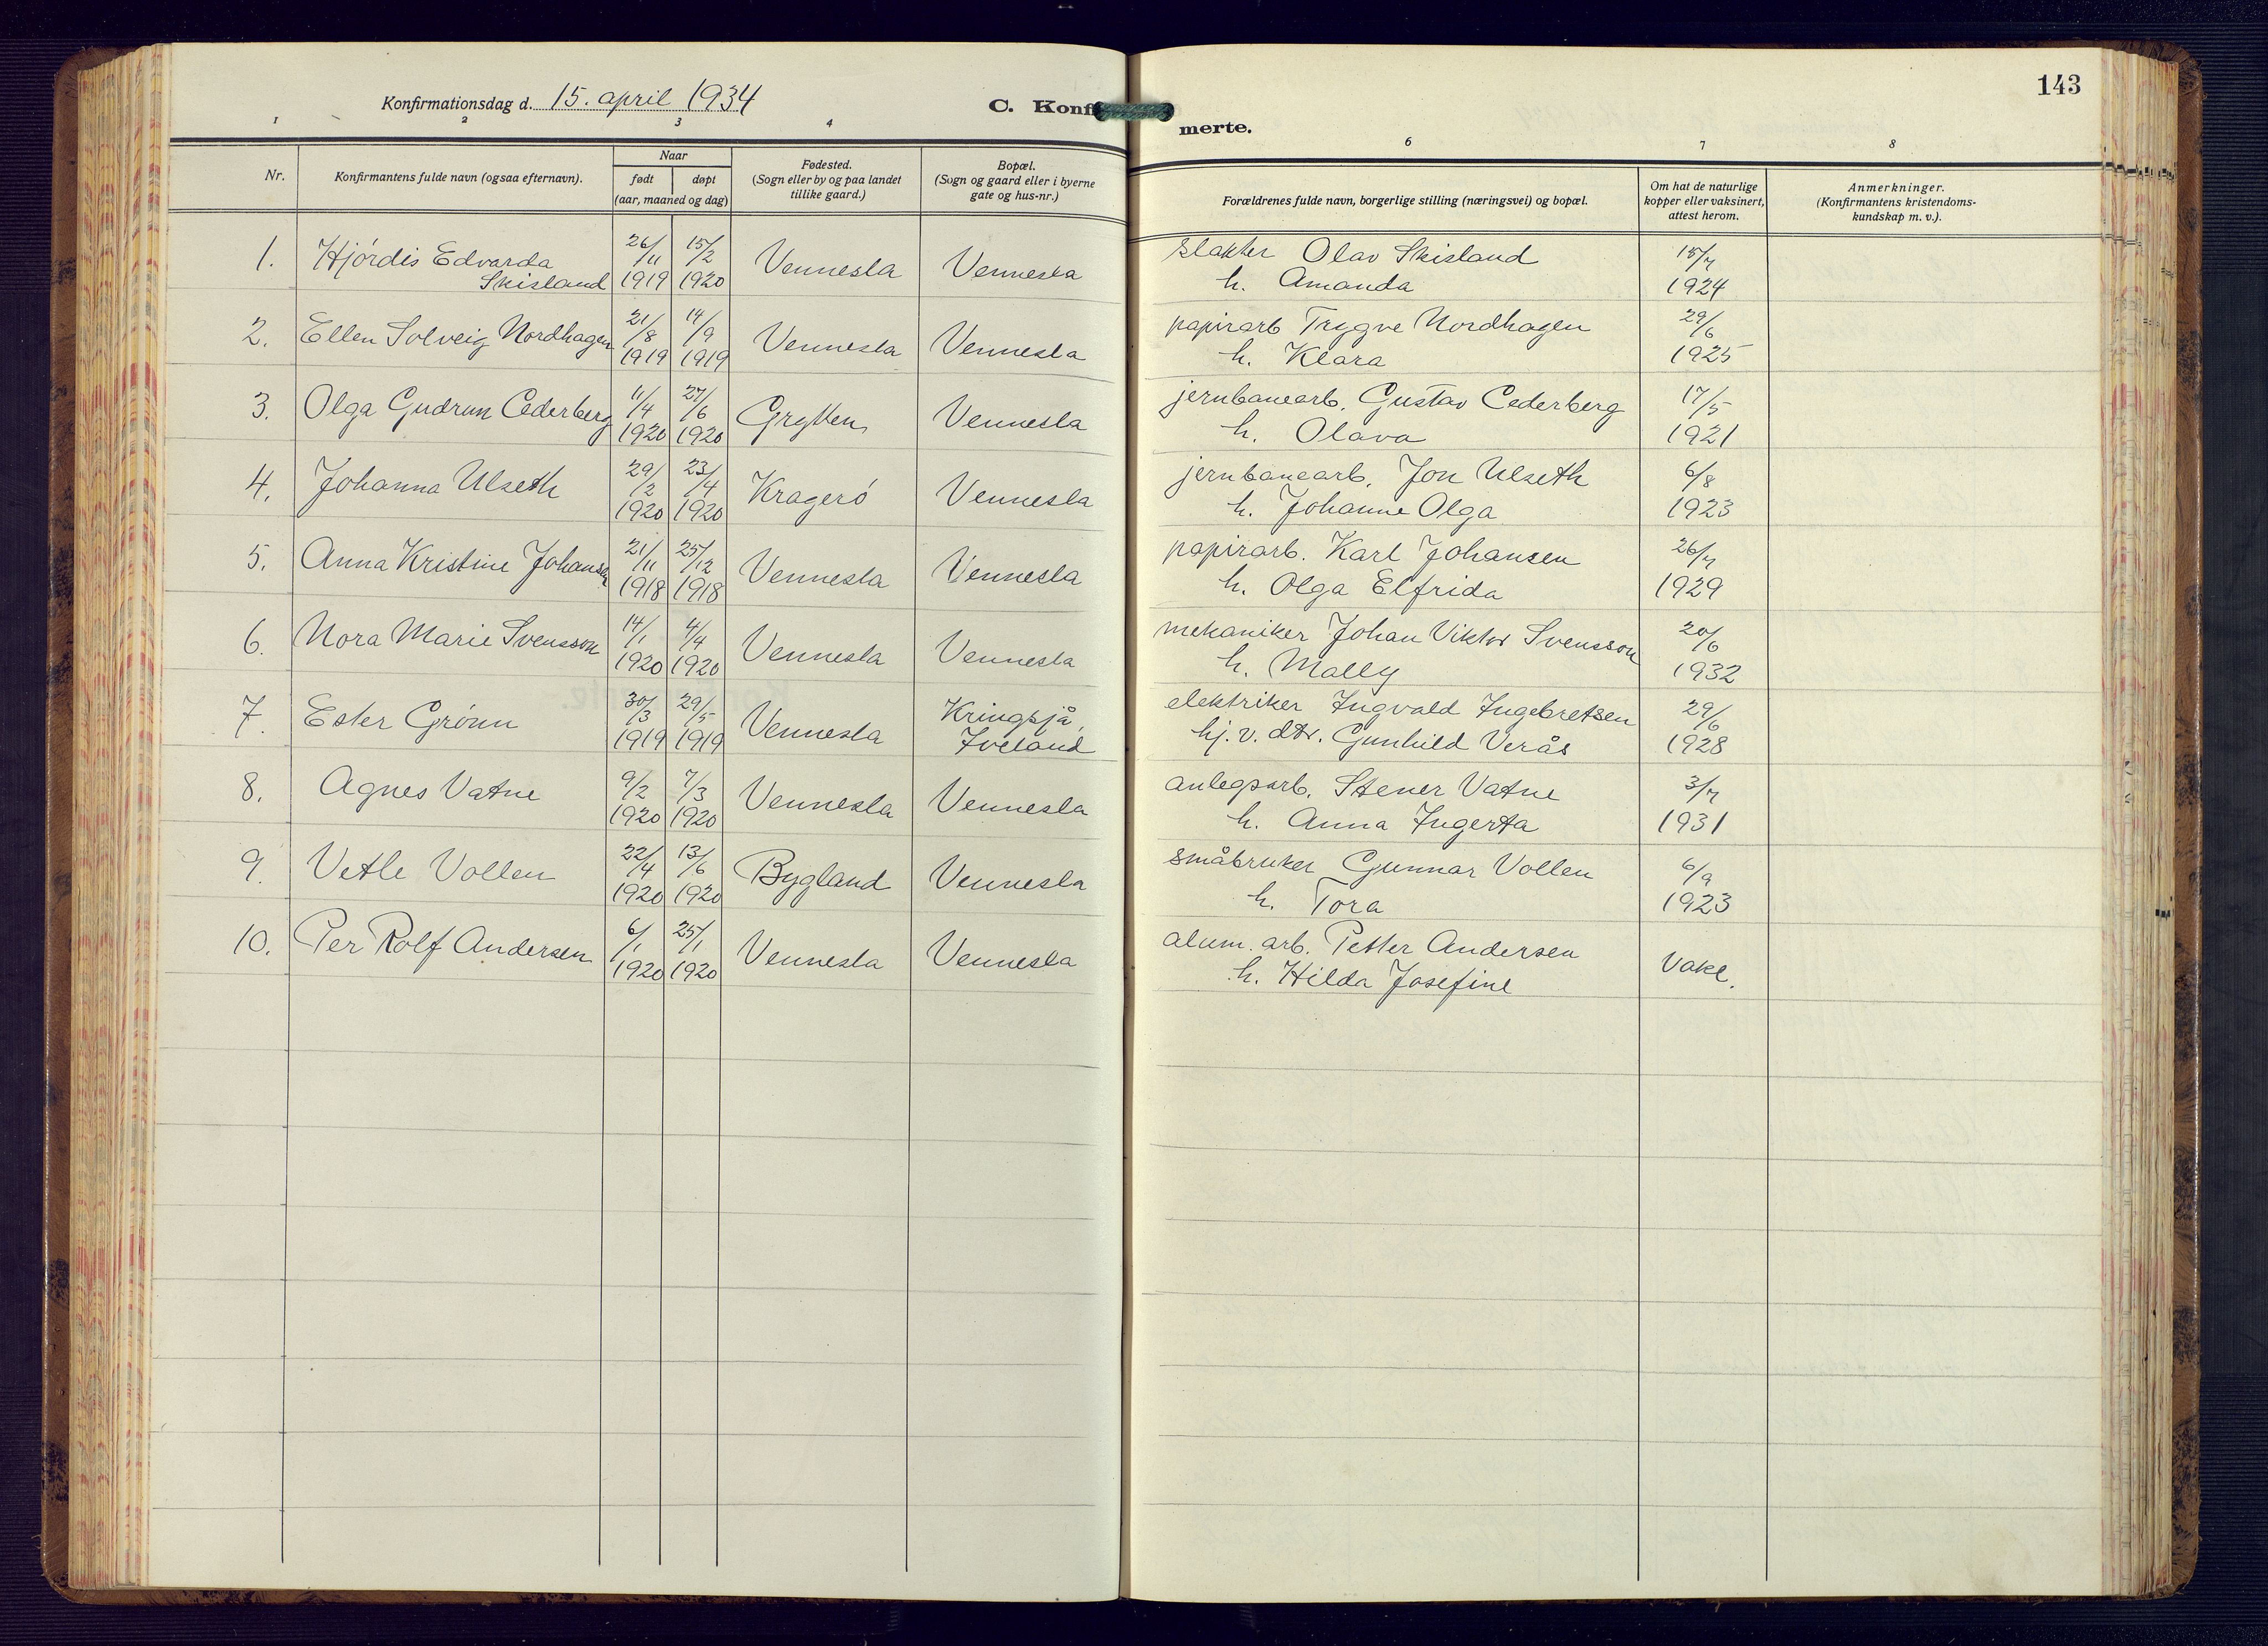 Konfirmationsdag d. 15. april 1934
C. Konf
merte.
143
1 2 3 4 6 7 8
Nr.
Konfirmantens fulde navn (ogsaa efternavn).
Naar
født døpt
(aar, maaned og dag)
Fødested.
(Sogn eller by og paa landet
tillike gaard.)
Bopæl.
(Sogn og gaard eller i byerne
gate og hus-nr.)
Forældrenes fulde navn, borgerlige stilling (næringsvei) og bopæl.
Om hat de naturlige
kopper eller vaksinert,
attest herom.
Anmerkninger.
(Konfirmantens kristendoms-
kundskap m. v.).
1. Hjördis Edvarda 26/11 15/2 Vennesla Vennesla slakter Olav Skisland 15/7
Skisland 1919 1920 h. Amanda 1924
2. Ellen Solveig Nordhagen 21/8 14/9 Vennesla Vennesla papirarb Trygve Nordhagen 29/6
1919 1919 h. Klara 1925
3. Olga Gudrun Cederberg 11/4 27/6 Grytten Vennesla jernbanearb. Gustav Cederberg 17/5
1920 1920 h. Olava 1921
4. Johanna Ulseth 29/2 23/4 Kragerö Vennesla jernbanearb. Jon Ulseth 6/8
1920 1920 h. Johanne Olga 1923
5. Anna Kristine Johansen 21/11 25/12 Vennesla Vennesla papirarb. Karl Johansen 26/7
1918 1918 h. Olga Elfrida 1929
6. Nora Marie Svensson 14/1 4/4 Vennesla Vennesla mekaniker Johan Viktor Svensson 20/6
1920 1920 h. Mally 1932
7. Ester Grönn 30/3 29/5 Vennesla Kringsjå, elektriker Ingvald Ingebretsen 29/6
1919 1919 Iveland hj. v. dtr. Gunhild Verås 1928
8. Agnes Vatne 9/2 7/3 Vennesla Vennesla anlegsarb. Stener Vatne 3/7
1920 1920 h. Anna Ingerta 1931
9. Vetle Vollen 22/4 13/6 Bygland Vennesla småbruker Gunnar Vollen 6/9
1920 1920 h. Tora 1923
10. Per Rolf Andersen 6/1 25/1 Vennesla Vennesla alum. arb. Petter Andersen Vakc.
1920 1920 h. Hilda Josefine